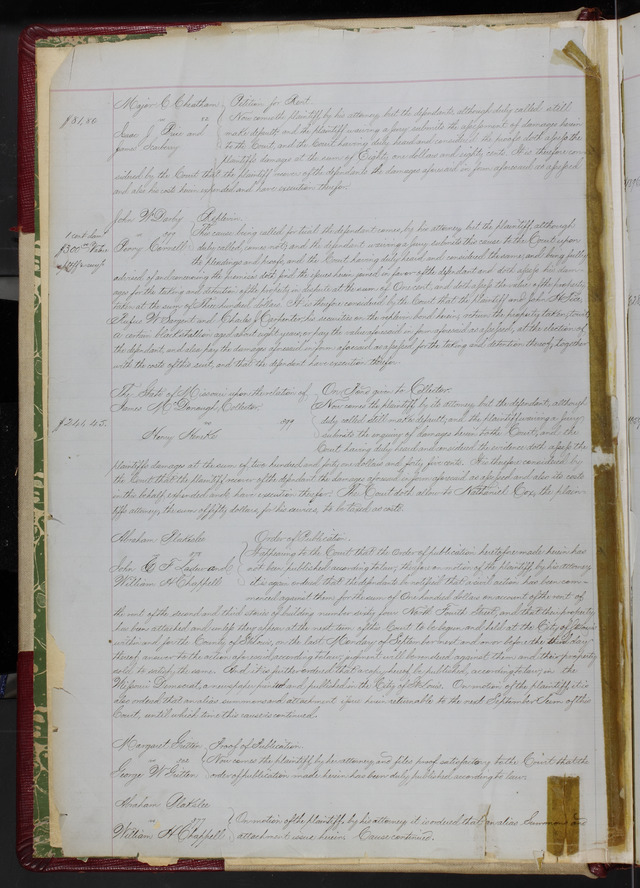 Major C. Cheatham } Petition for Rent.
$81,80 vs } Now comes the plaintiff by his attorney, but the defendants, although duly called still
Isaac J. Price and } make default and the plaintiff waiving a jury submits the assessment of damages herein
James to the Court, and the Court having duly heard and considered the proofs doth assess the
plaintiffs damages at the sum of Eighty one dollars and eighty cents. It is therefore con-
sidered by the Court that the plaintiff recover of the defendants the damages aforesaid in form aforesaid as assessed
and also his costs herein expended and have execution therefor.
John W Darby } Replevin.
1 cent dam vs } This cause being called for trial the defendant comes, by his attorney but the plaintiff, although
$300 Value Perry duly called, comes not; and the defendant waiving a jury submits this cause to the Court upon
the pleadings and proofs, and the Court having duly heard and considered the same, and being fully
advised of and concerning the premises doth find the issues herein joined in favor of the defendant and doth assess his dam-
ages for the taking and detention of the property in dispute at the sum of One cent, and doth assess the value of the property
taken at the sum of Three hundred dollars. It is therefore considered by the Court that the plaintiff and John
Rufus W Sergent and Charles J Carpenter, his securities on the replevin bond herein, return the property taken, to wit:
a certain black stallion aged about eight years, or pay the value aforesaid in form aforesaid as assessed, at the election of
the defendant, and also pay the damages aforesaid in form aforesaid as assessed for the taking and detention thereof, together
with the costs of this suit, and that the defendant have execution therefor.
The State of Missouri upon the relation of } On given to Collector.
James M. Collector. } Now comes the plaintiff by its attorney but the defendant, although
$241.45. vs duly called still makes default, and the plaintiff waiving a jury
Henry submits the inquiry of damages herein to the Court, and the
Court, having duly heard and considered the evidence doth assess the
plaintiffs damages at the sum of two hundred and forty one dollars and forty five cents. It is therefore considered by
the Court that the plaintiff recover of the defendant the damages aforesaid in form aforesaid as assessed and also its costs
in this behalf expended and have execution therefor. The Court doth allow to Nathaniel Cox, the plain-
tiffs attorney, the sum of fifty dollars, for his services, to be taxed as costs.
Abraham Blakslee } Order of Publication.
vs } It appearing to the Court that the Order of publication heretofore made herein has
John E. T. and } not been published according to law, therefore on motion of the plaintiff by his attorney
William H Chappell } it is again ordered that the defendants be notified that a civil action has been com-
menced against them for the sum of One hundred dollars on account of the rent of
the rent of the second and third stories of building number sixty four North Fourth Street, and that their property
has been attached and unless they appear at the next term of this Court to be begun and held at the City of St Louis
within and for the County of St Louis, on the last Monday of September next and on or before the third day
thereof and answer to the action according to law, judgment will be rendered against them and their property
sold to satisfy the same. And it is further ordered that a copy hereof be published, according to law, in the
Missouri Democrat, a newspaper printed and published in the City of St Louis. On motion of the plaintiff it is
also ordered that an alias summons and attachment issue herein returnable to the next September Term of this
Court, until which time this cause is continued.
Margaret } Proof of Publication.
vs } Now comes the plaintiff, by her attorney, and files proof satisfactory to the Court that the
George W order of publication made herein has been duly published according to law.
Abraham Blakslee
vs } On motion of the plaintiff, by his attorney it is ordered that an alias Summons and
William H Chappell } attachment issue herein. Cause continued.